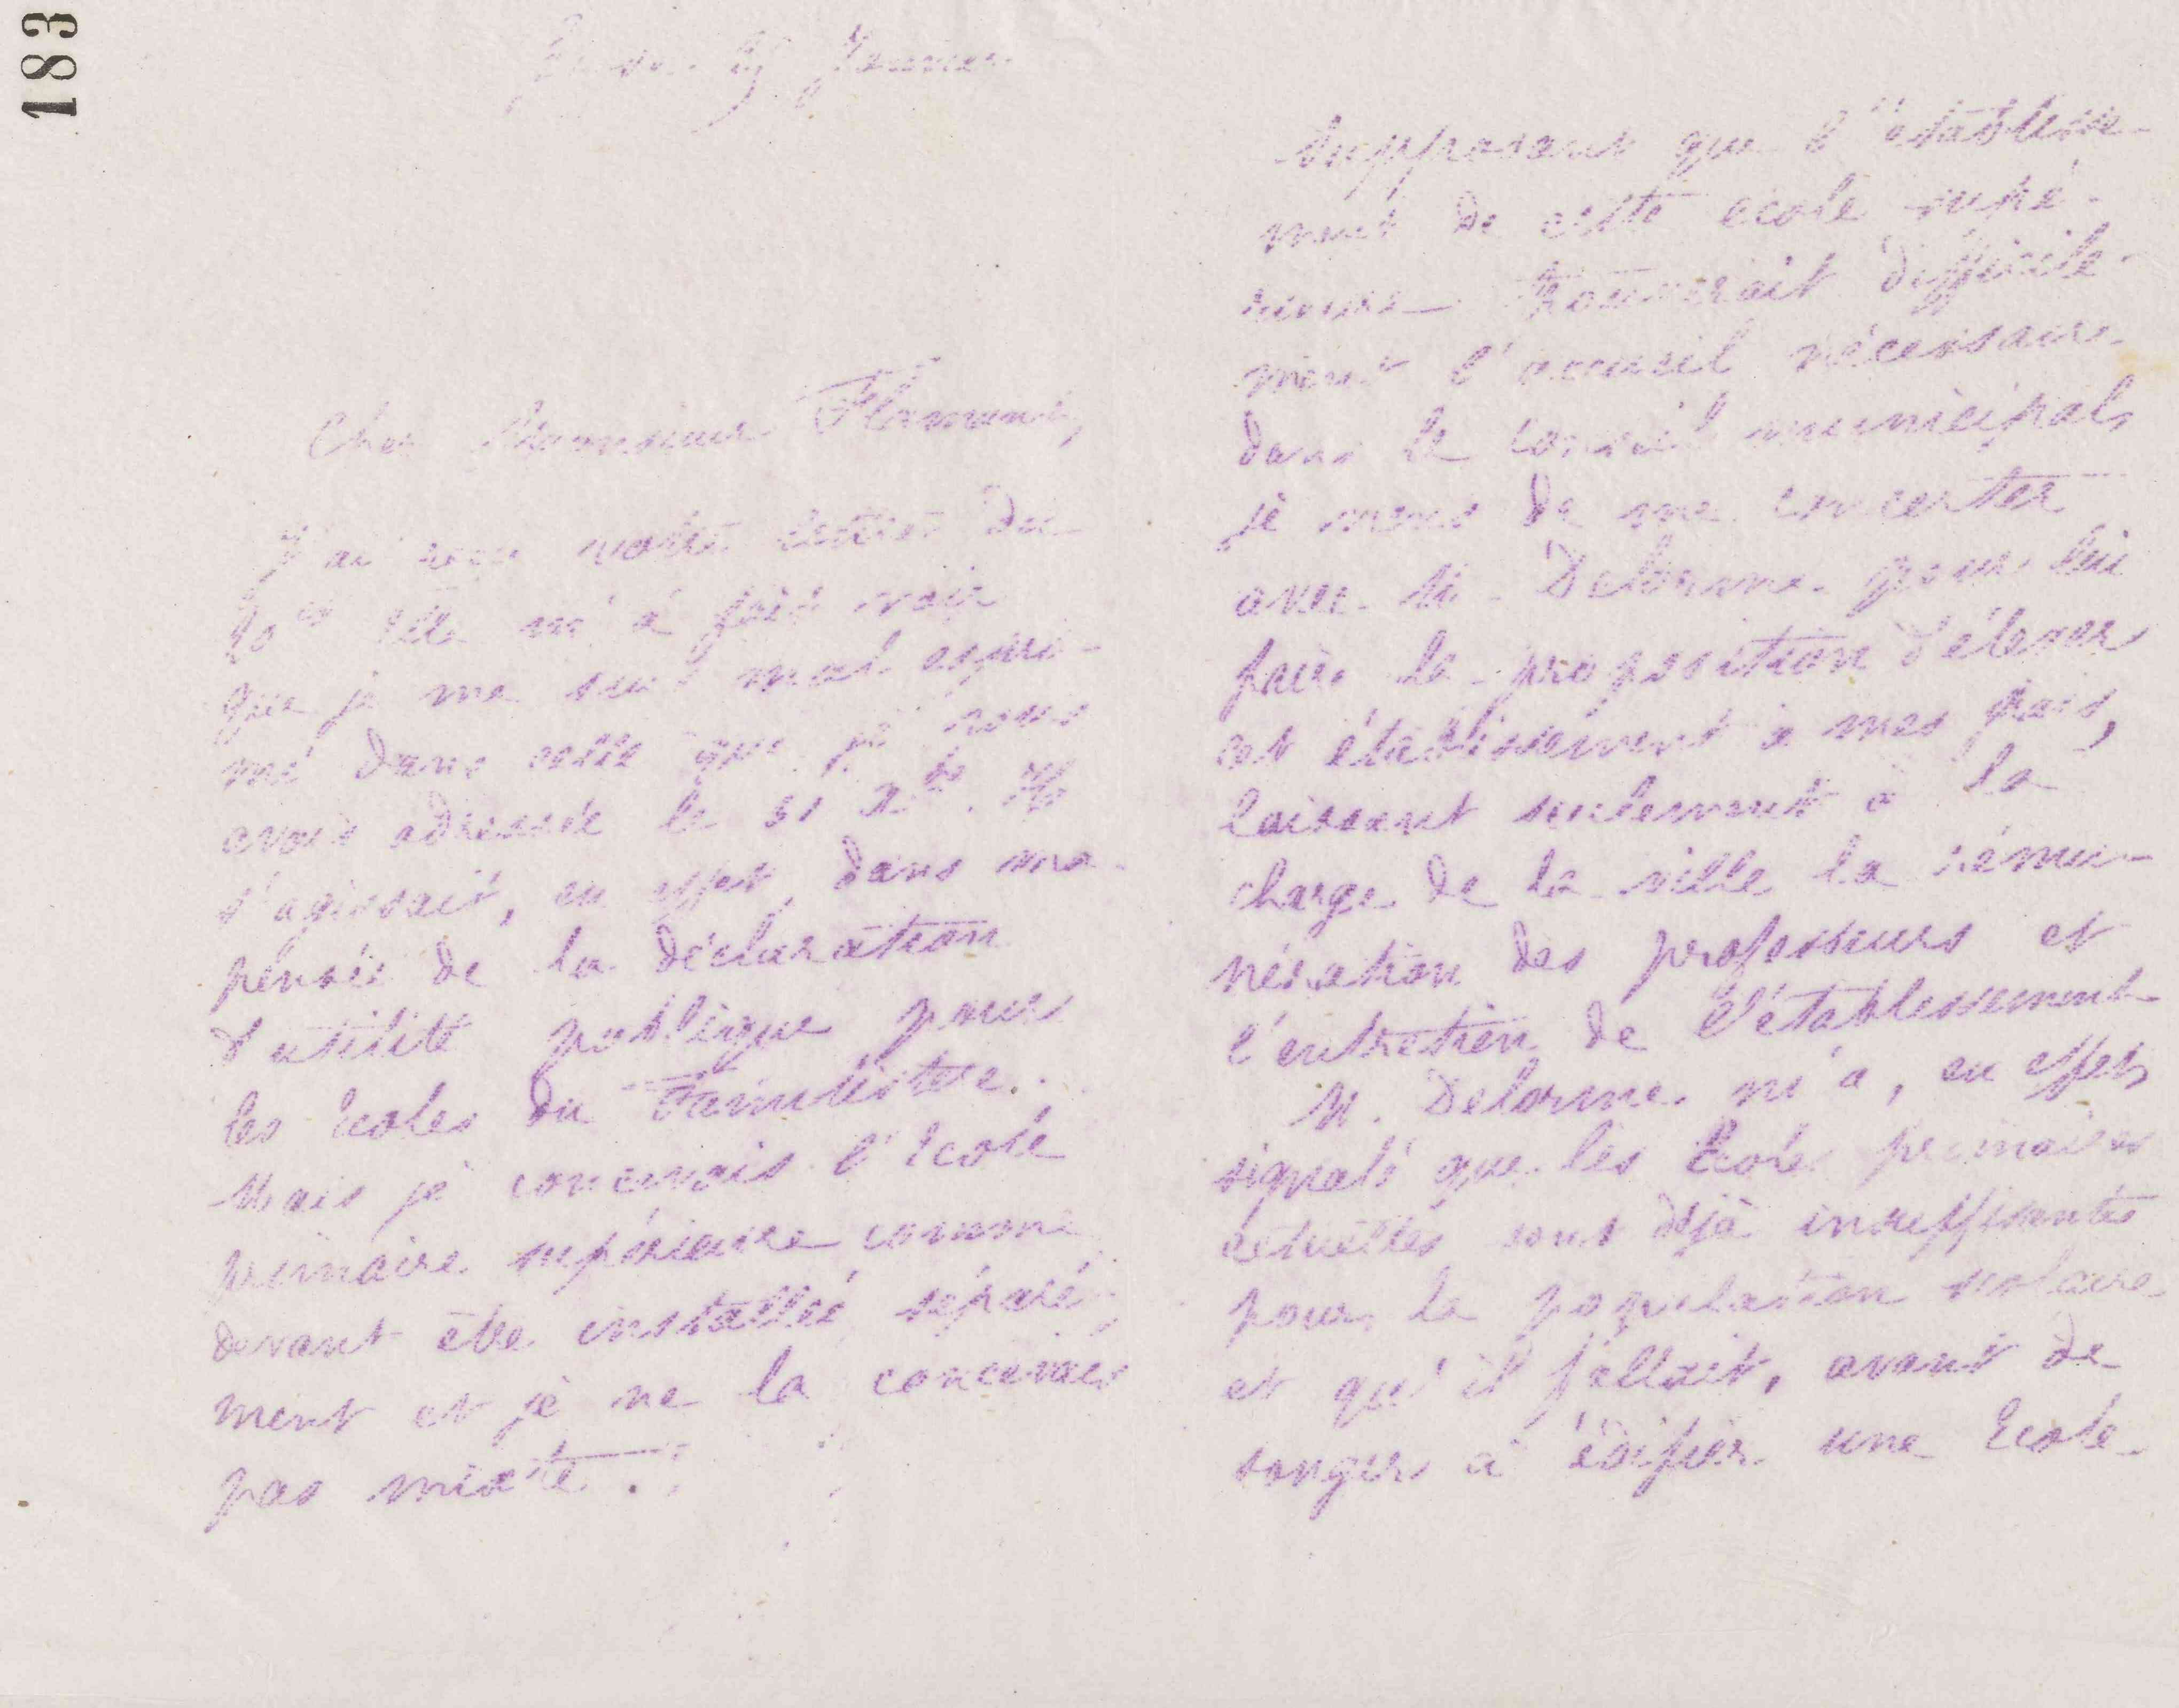 183
Janvier
Cher Monsieur Flamant,
J'ai reçu votre lettre du
20 ct elle m'a fait voir
que je me suis mal expri-
mé dans celle que je vous
avais adressée le 31 Xbre. Il
s'agissait, en effet, dans ma
pensée de la déclaration
d'utilité publique pour
les Ecoles du Familistère.
Mais je concevais l'Ecole
primaire supérieure comme
devant être installée séparé-
ment et je ne la concevais
pas mixte.
Supposant que l'établisse-
ment de cette école supé-
rieure trouverait difficile-
ment l'accueil nécessaire
dans le conseil municipal,
je viens de me concerter
avec M. Delorme pour lui
faire la proposition d'élever
cet établissement à mes frais,
laissant seulement à la
charge de la ville la rému-
nération des professeurs et
l'entretien de l'établissement
M. Delorme m'a, en effet,
signalé que les Ecoles primaires
actuelles sont déjà insuffisantes
pour la population scolaire
et qu'il fallait, avant de
songer à édifier une Ecole